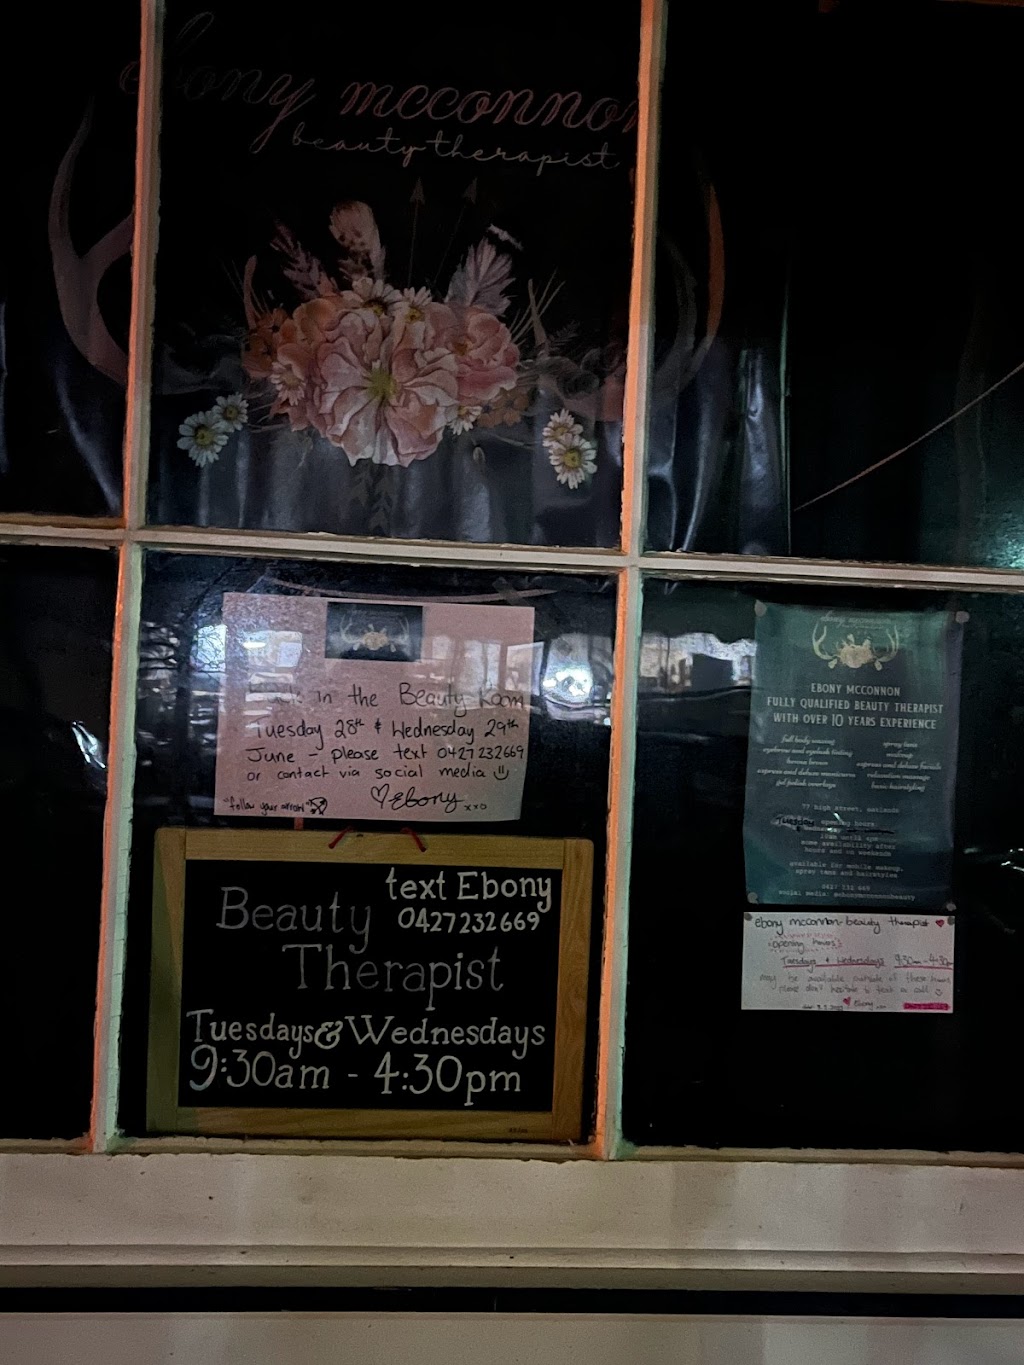 ebony mcconnon
beauty therapist
in the Beauty Room
Tuesday 28th & Wednesday 29th
June - please text 0427232669
or contact via social media
Ebony xxo
"follow your arrow"
text Ebony
0427232669
Beauty
Therapist
Tuesdays & Wednesdays
9:30am - 4:30pm
EBONY MCCONNON
FULLY QUALIFIED BEAUTY THERAPIST
WITH OVER 10 YEARS EXPERIENCE
full body waxing
eyebrow and eyelash tinting
henna brows
express and deluxe manicures
gel polish overlays
spray tans
makeup
express and deluxe facials
relaxation massage
basic hairstyling
77 high street, oatlands
Tuesday opening hours:
some availability after
hours and on weekends
available for mobile makeup,
spray tans and hairstyles
0427 232 669
social media: @ebonymcconnonbeauty
ebony mcconnon-beauty therapist
opening hours:
Tuesdays & Wednesdays 9:30am - 4:30pm
may be available outside of these hours
please don't hesitate to text or call
Ebony